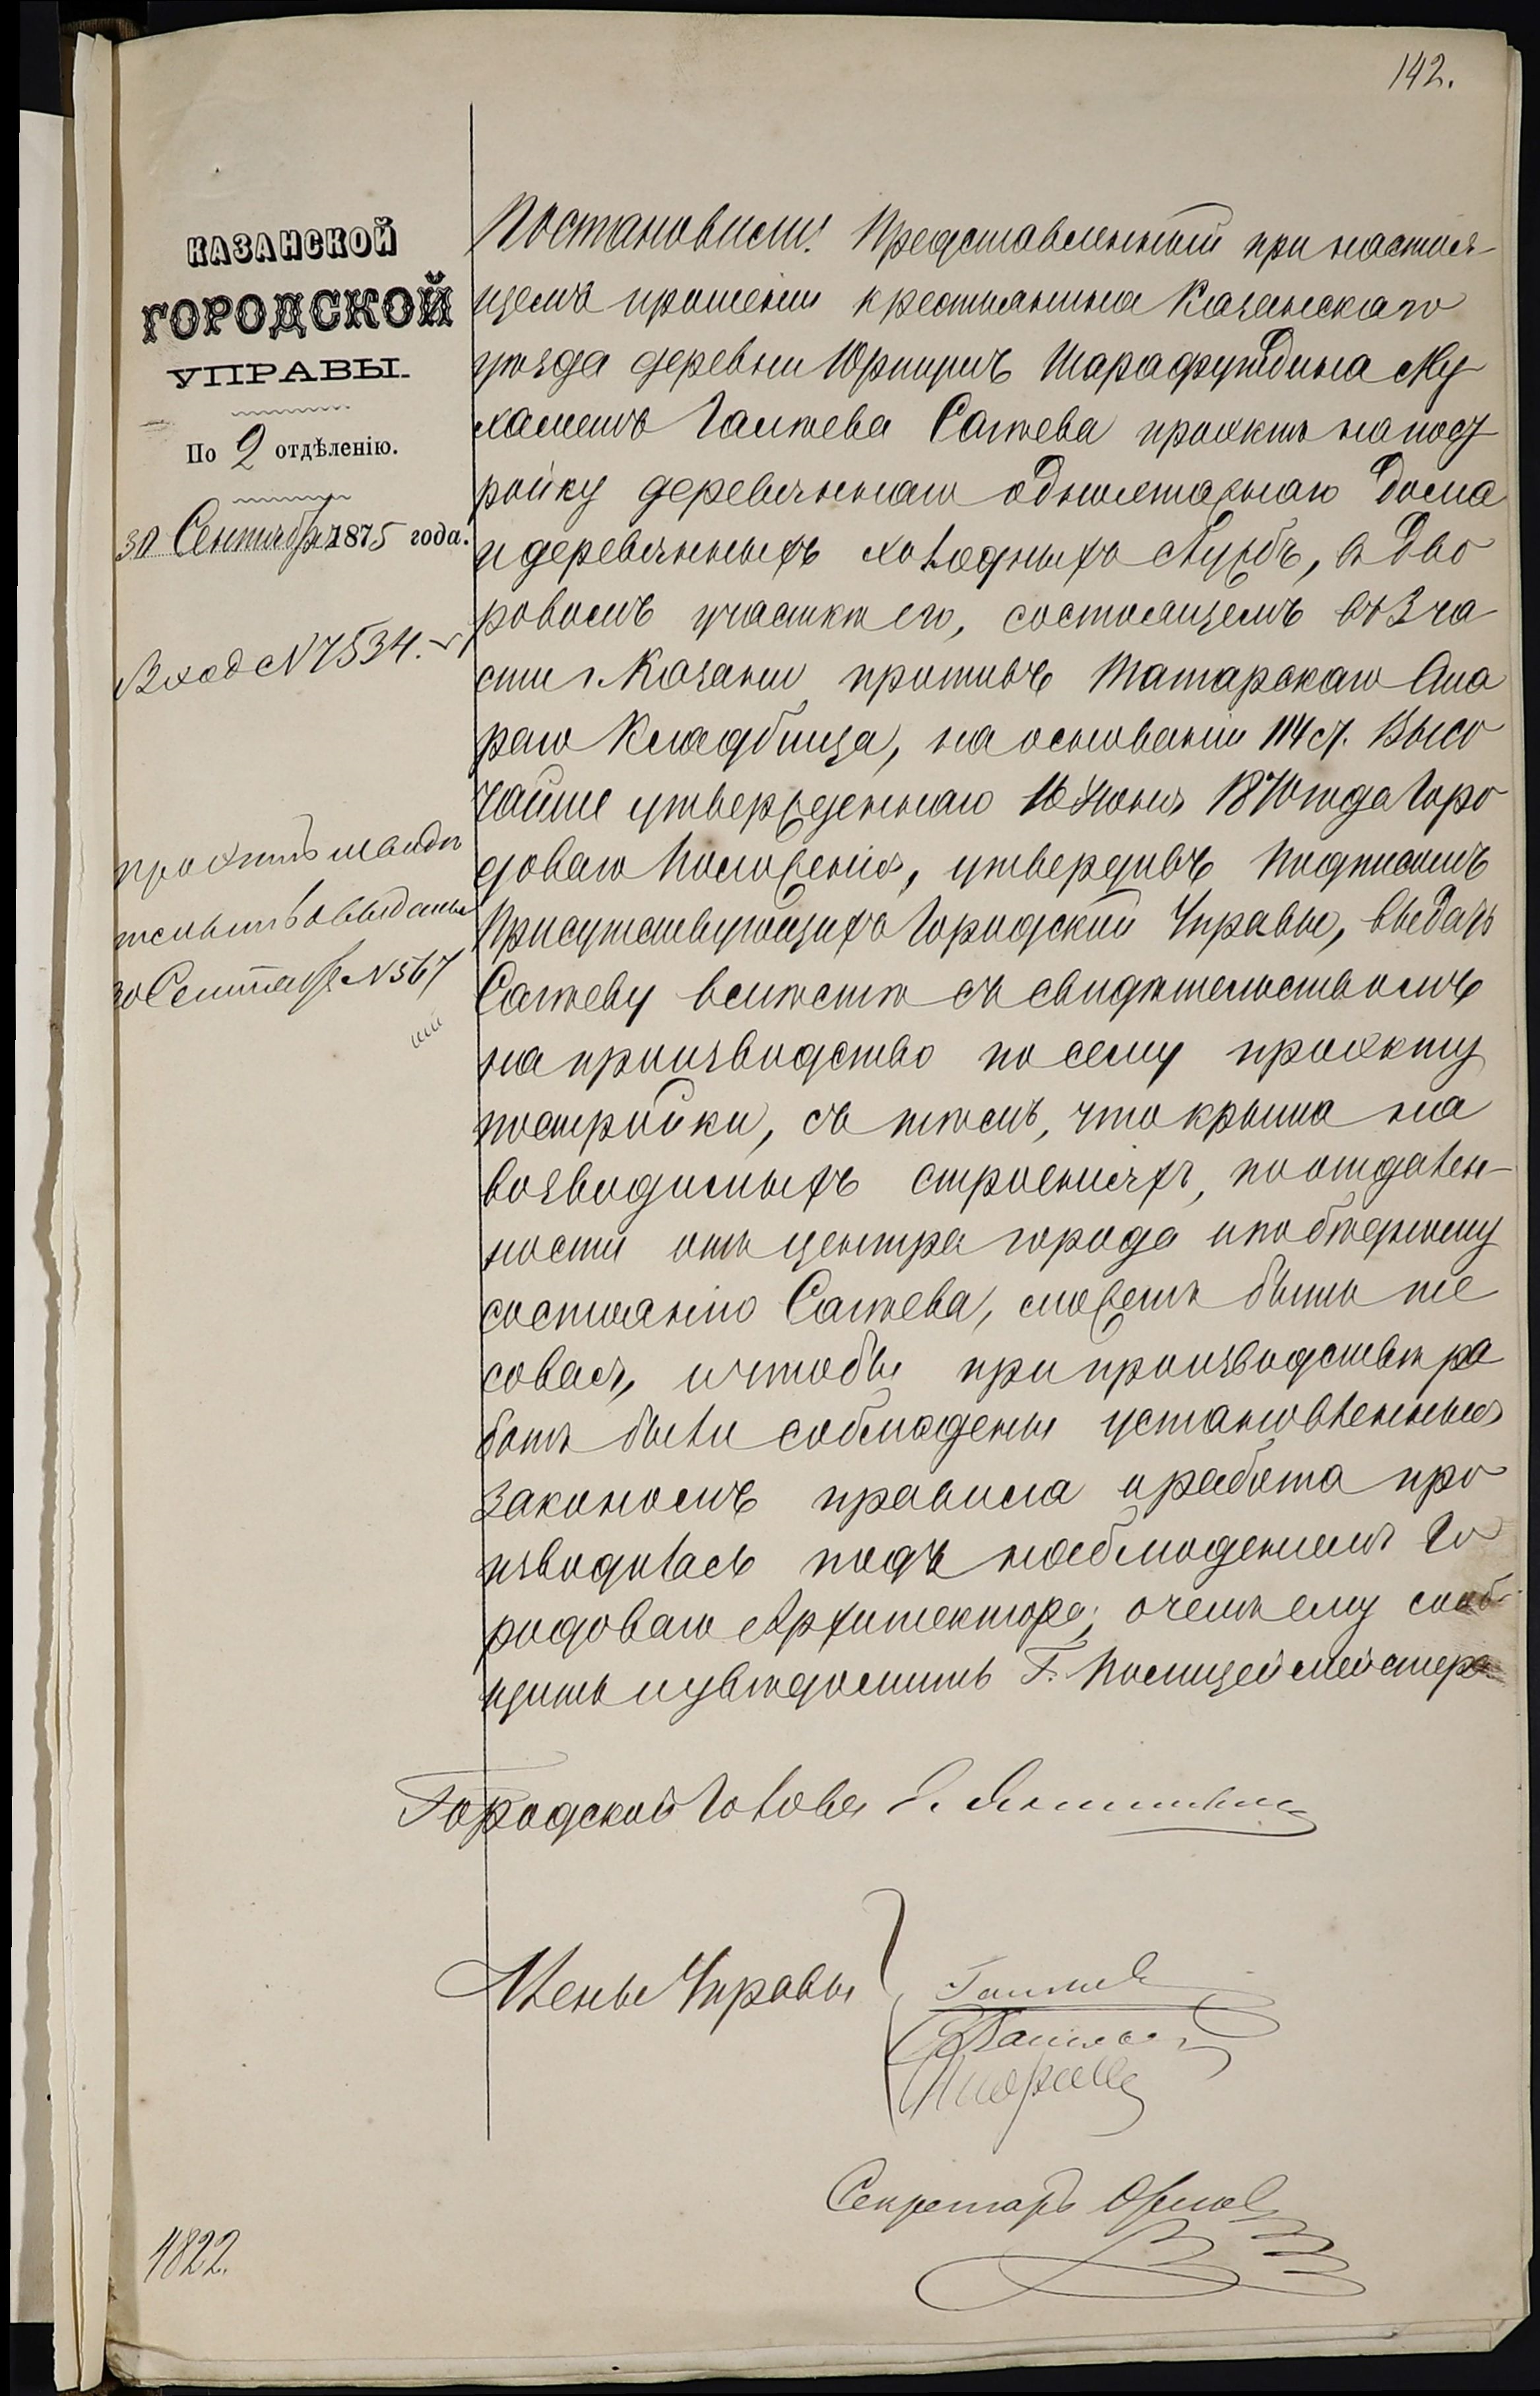 142.
КАЗАНСКОЙ
ГОРОДСКОЙ
УПРАВЫ.
По 2 отдѣленію.
30 Сентября 1875 года.
Вход № 7534.
проэктъ и свидѣ
тельство выданы
30 Сентября № 567
Постановили: Представленный при настоя-
щемъ прошеніи крестьянина Казанскаго
уѣзда деревни Юртышъ Шарафутдина Му
хаметъ Галѣева Сагѣева проэктъ на пост
ройку деревяннаго одноэтажнаго дома
и деревянныхъ холодныхъ службъ, въ дво
ровомъ участкѣ его, состоящемъ въ 3 ча
сти г. Казани противъ Татарскаго Ста
раго Кладбища, на основаніи 114 ст. Высо
чайше утвержденнаго 16 Іюня 1870 года Горо
доваго Положенія, утвердивъ подписомъ
Присутствующихъ Городской Управы, выдать
Сагѣеву вмѣстѣ съ свидѣтельствомъ
на производство по сему проэкту
постройки, съ тѣмъ, что крыша на
возводимыхъ строеніяхъ, по отдален-
ности отъ центра города и по бѣдному
состоянію Сагѣева, можетъ быть те
совая, и чтобы при производствѣ ра
ботъ были соблюдены установленныя
закономъ правила и работа про
изводилась подъ наблюденіемъ Го
родоваго Архитектора; о чемъ ему сооб-
щить и увѣдомить Г. Полицеймейстера
Городской Голова Э. Янишевскій
Члены Управы
Секретарь Орлов
4822.